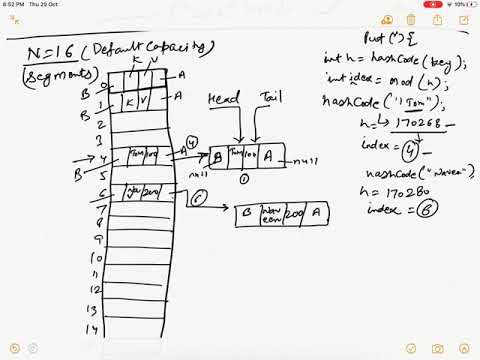 8:52 PM Thu 29 Oct
10%
N=16 (Default Capacity)
(Segments)
K V
B 0 A
B 1 K V A
2
3
4 Tom 100 A 4
B 5
6 200 6
7
8
9
10
11
12
13
14
Head Tail
B Tom 100 A
null null
1
B Nav
een 200 A
Put(" "){
int h = hashCode(key);
int index = mod(h);
hashCode("Tom")
h = 170268
index = 4
hashCode("Naveen")
h = 170280
index = 6